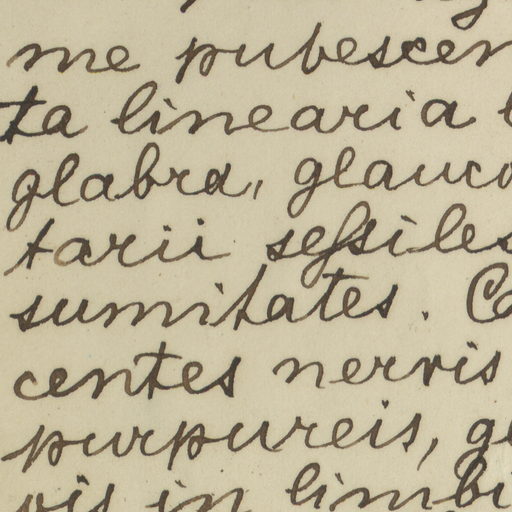 me pubescen
ta linearia
glabra, glauc
tarii sessiles
sumitates. Co
centes nervis
purpureis, ge
vis in limbi